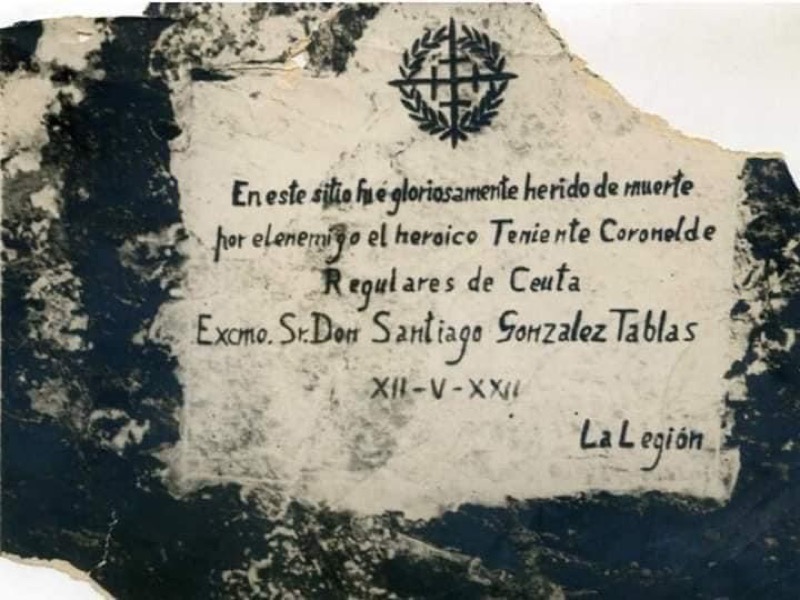 En este sitio fué gloriosamente herido de muerte
por el enemigo el heroico Teniente Coronel de
Regulares de Ceuta
Excmo. Sr. Don Santiago Gonzalez Tablas
XII-V-XXII
La Legión